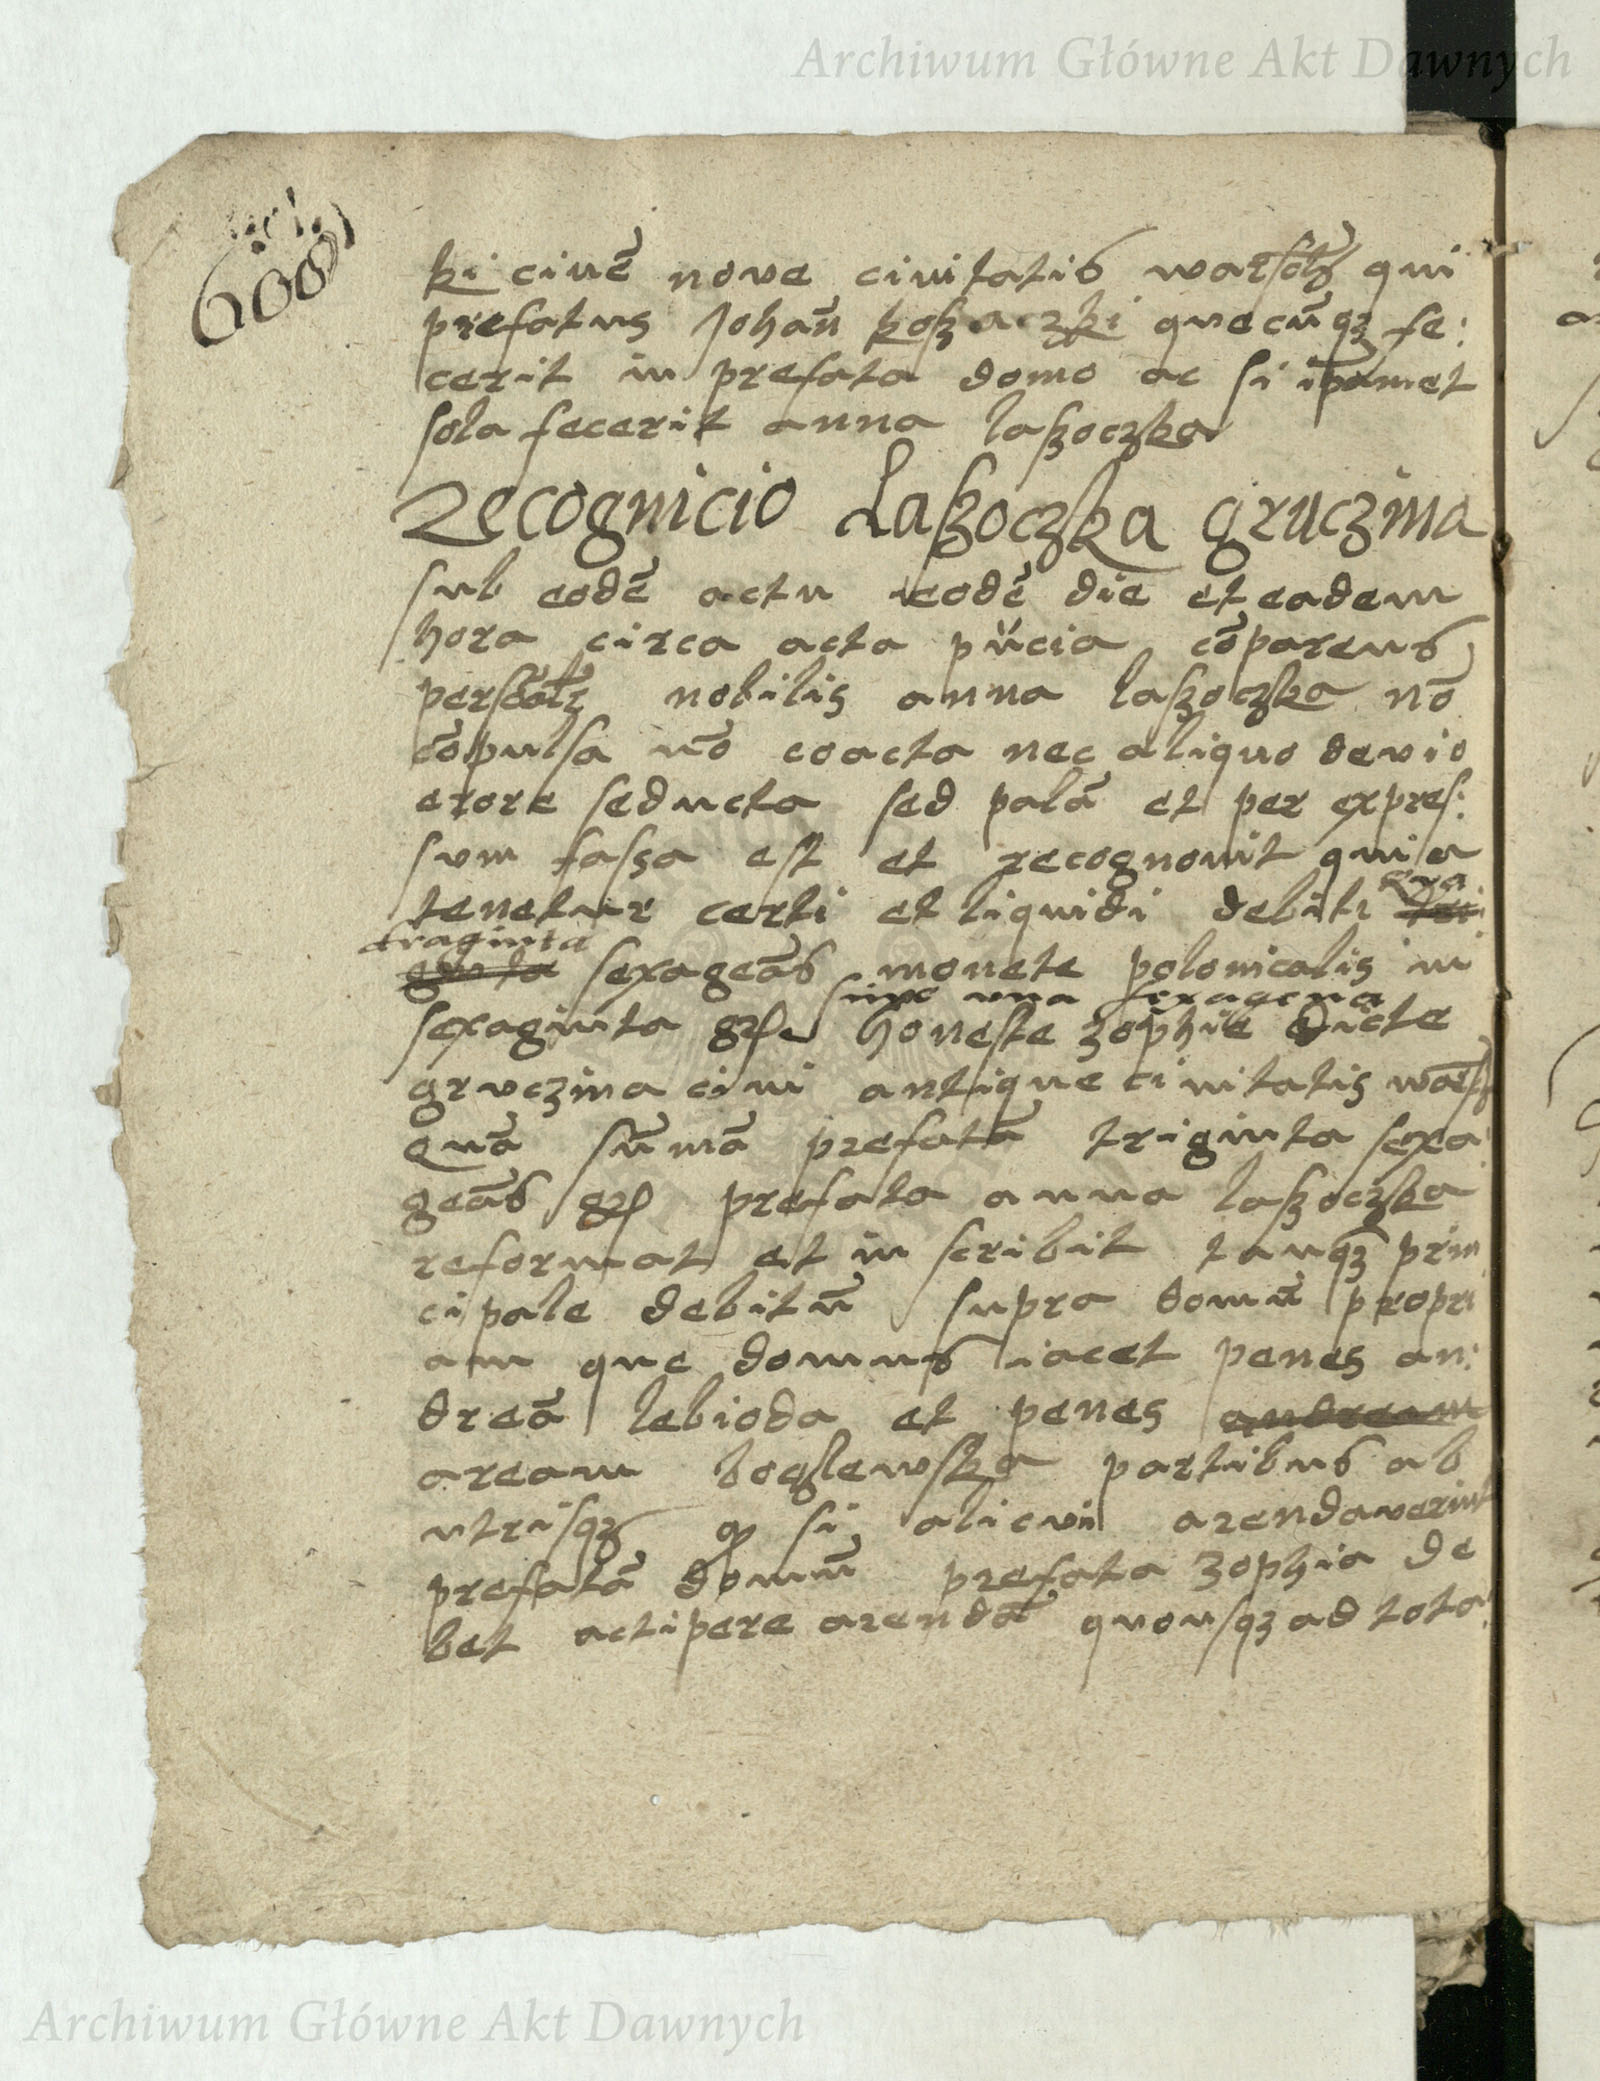 Archiwum Główne Akt Dawnych
ki civē nove civitatis warsoῡ qui
prefatus Johan̄ koßaczki quecūqꝫ fe:
cerit in prefata domo ac si ip̄amet
sola fecerit anna laßoczka
Recognicio Laßoczka gruczina
sub eodē actu eodē die et eadem
hora circa acta pn̄cia cōparens
nobilis anna laßoczka nō
cōpulsa nō coacta nec aliquo devio
erore seducta sed palā et per expres:
sum fassa est et recognovit quia
tenetur certi et liquidi debiti qua
draginta
ginta sexageās monete polonicalis in
una sexagena
sexaginta grſ honeste zophie dicte
gruczina civi antique civitatis warſ
quā sūmā prefatā triginta sexa
geās grſ prefata anna laßoczka
reformat et in scribit tanqꝫ prin
cipale debitū supra domū propri
am que domus iacet penes an:
dreā lebioda et penes andream
aream boglewska partibus ab
utrisqꝫ ꝙ si alicui arendaverint
prefatā domū prefata zophia de
bet actipere arendā quousqꝫ ad tota
Archiwum Główne Akt Dawnych